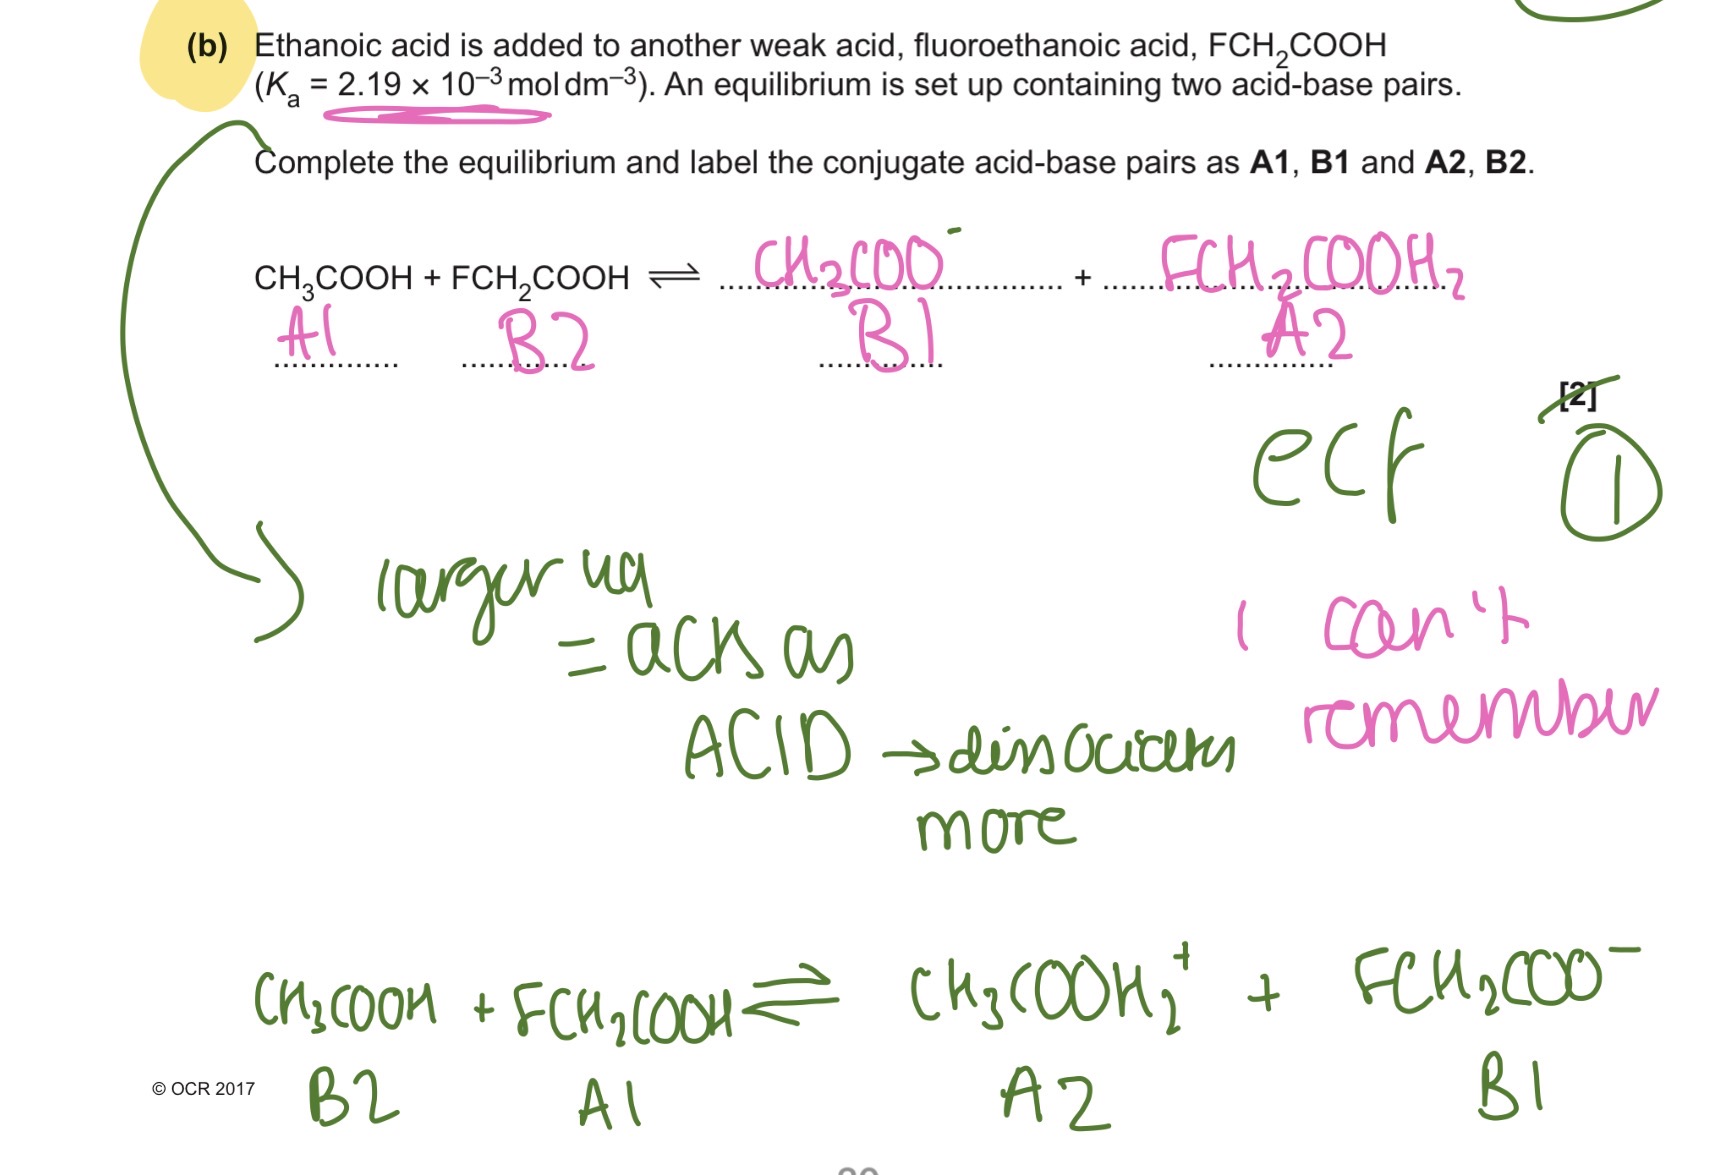 (b) Ethanoic acid is added to another weak acid, fluoroethanoic acid, FCH₂COOH
(Kₐ = 2.19 × 10⁻³ mol dm⁻³). An equilibrium is set up containing two acid-base pairs.
Complete the equilibrium and label the conjugate acid-base pairs as A1, B1 and A2, B2.
CH₃COOH + FCH₂COOH ⇌ CH₃COO⁻ + FCH₂COOH₂
A1 B2 B1 A2
[2]
ecf 1
larger ka
= acts as
ACID → dissociates
more
I can't
remember
CH₃COOH + FCH₂COOH ⇌ CH₃COOH₂⁺ + FCH₂COO⁻
B2 A1 A2 B1
© OCR 2017